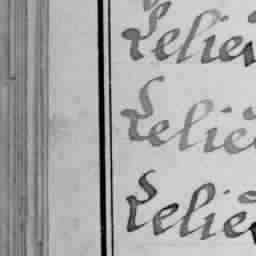 Relié
Relié
Relié